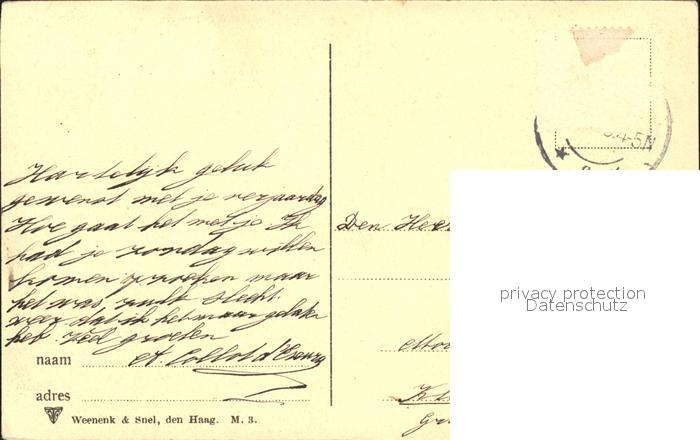 Hartelijk geluk
gewenst met je verjaardag
Hoe gaat het met je Ik
had je zondag willen
komen opzoeken maar
het was zulk slecht
weer dat ik het maar gelaten
heb. Veel groeten
naam A. Collot d'Escury
adres
Weenenk & Snel, den Haag. M. 3.
5.4-5N
Den Heer
privacy protection
Datenschutz